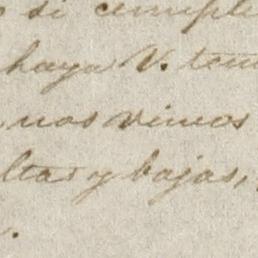 si cumpli
haya V. ten
nos vimos
ltas y bajas,